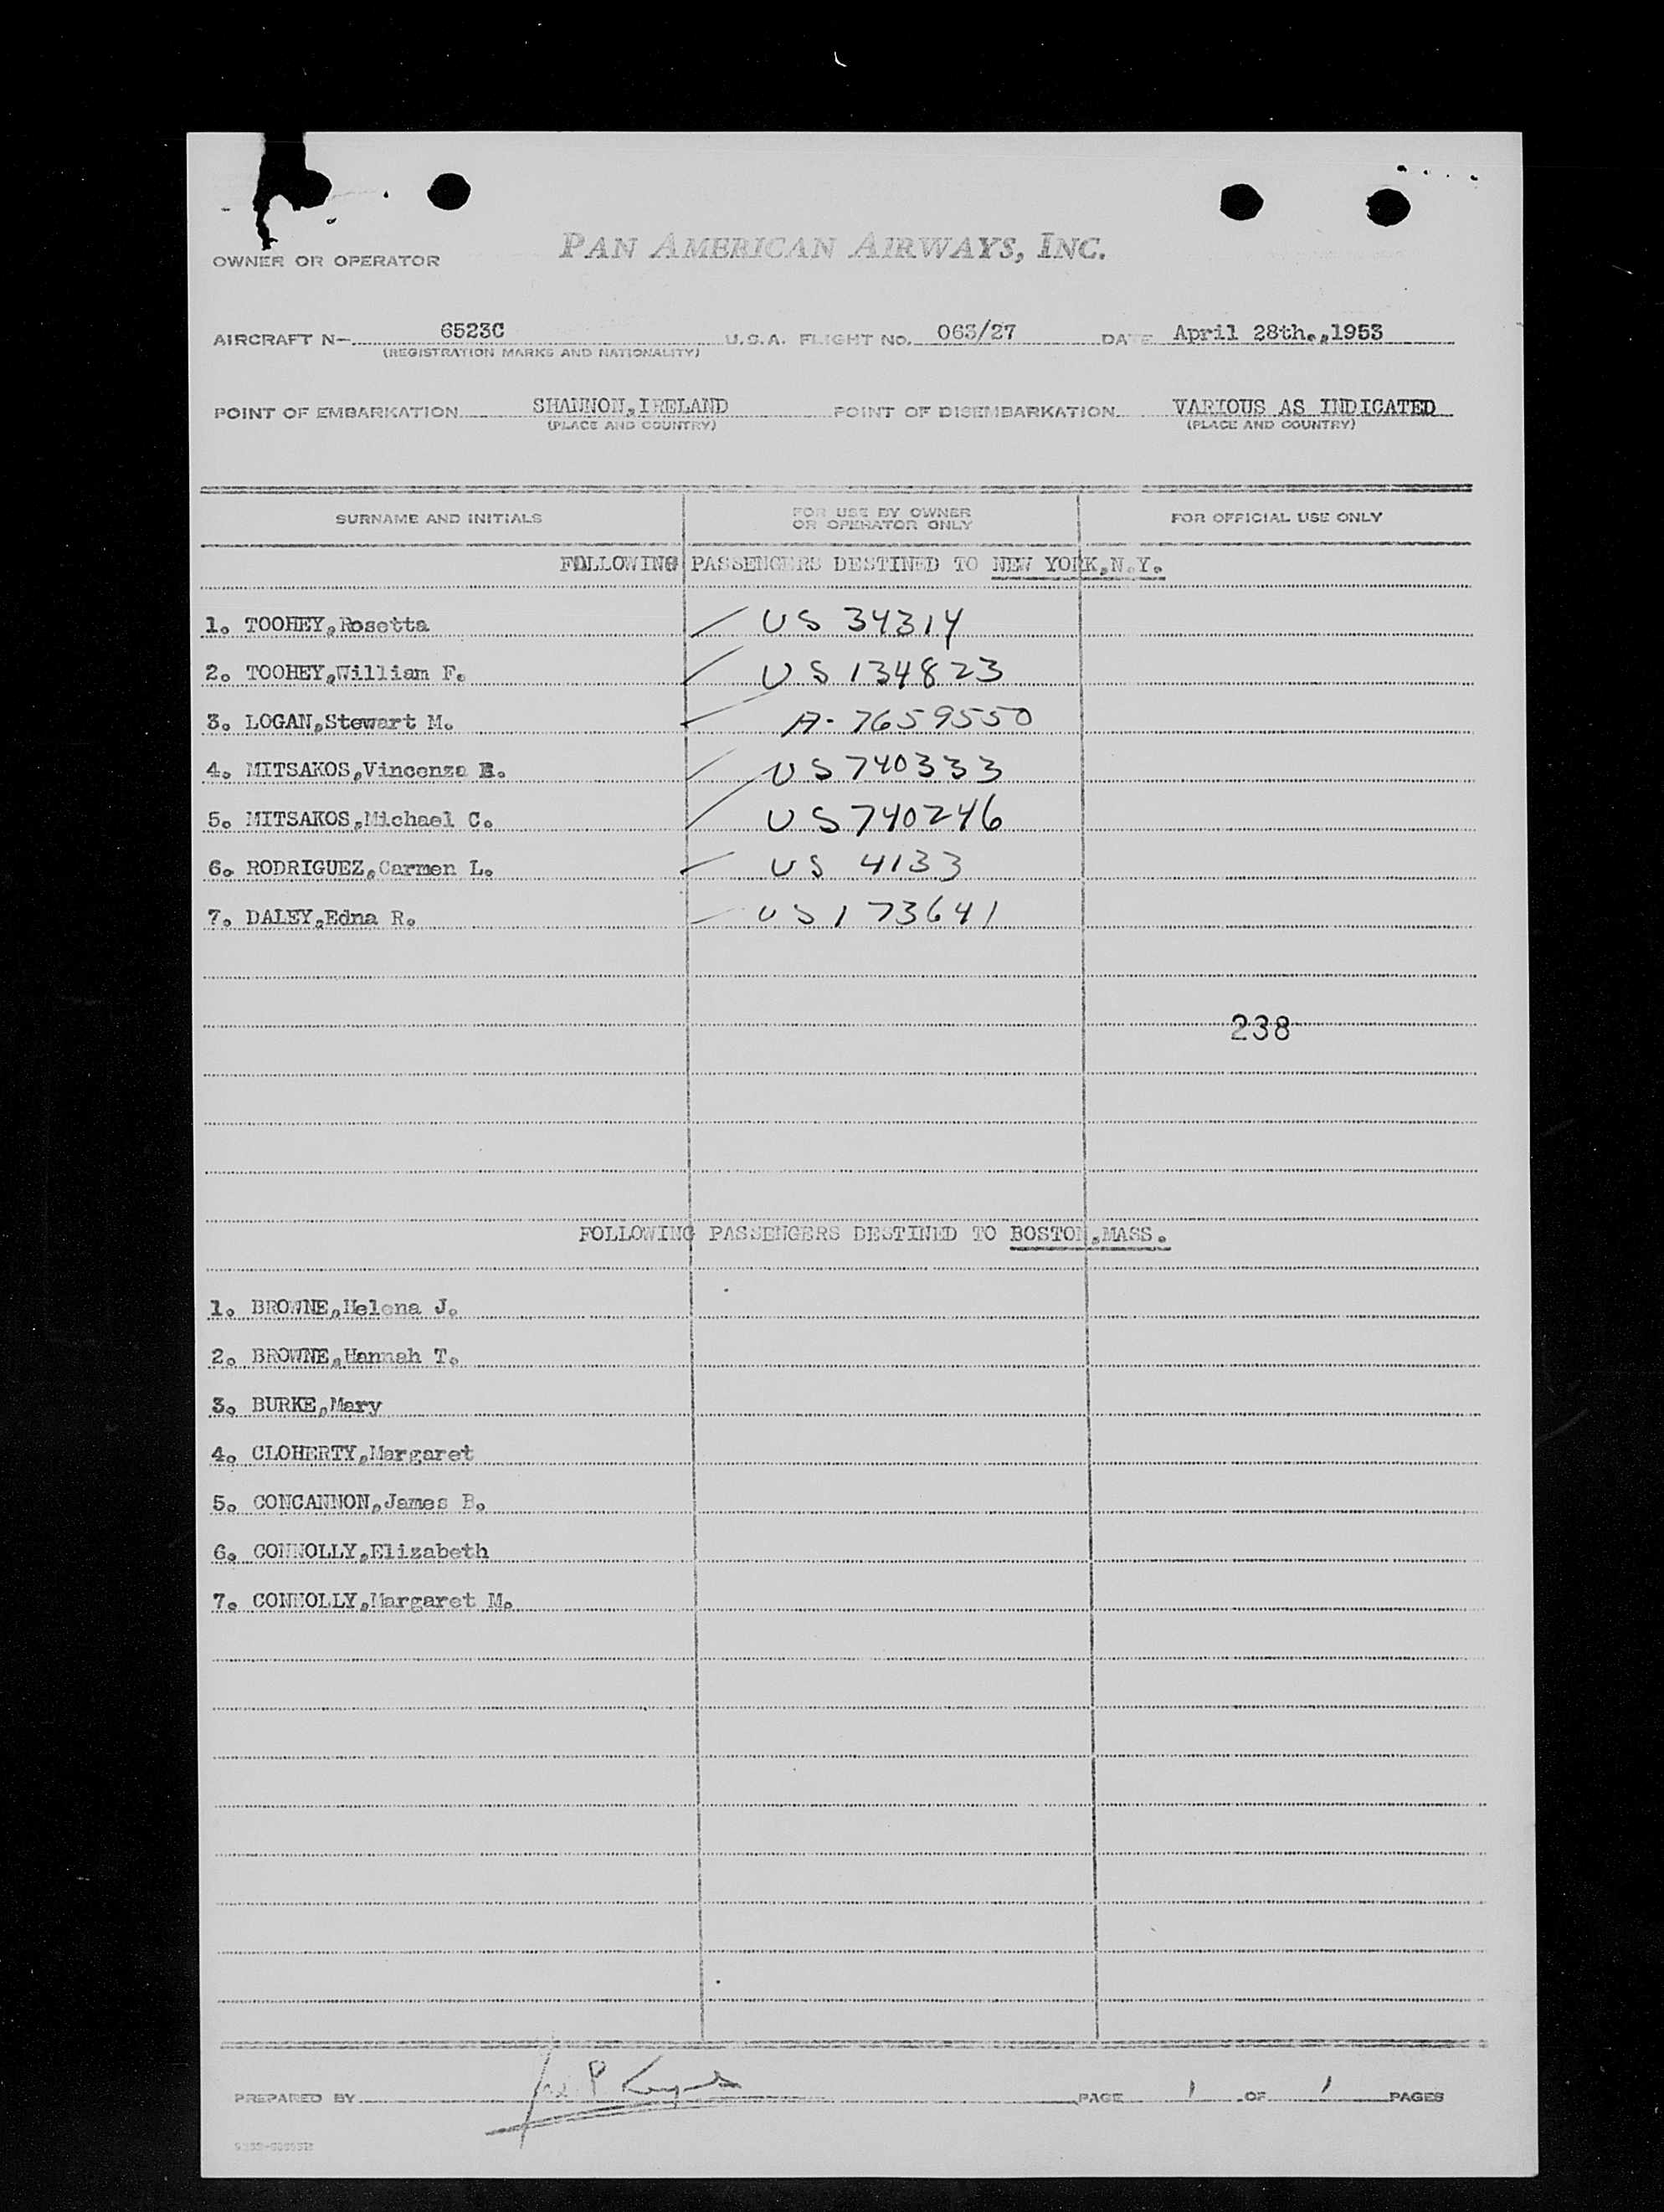 PAN AMERICAN AIRWAYS, INC.
OWNER OR OPERATOR
AIRCRAFT N- 6523C U.S.A. FLIGHT NO. 063/27 DATE April 28th.,1953
(REGISTRATION MARKS AND NATIONALITY)
POINT OF EMBARKATION SHANNON,IRELAND POINT OF DISEMBARKATION VARIOUS AS INDICATED
(PLACE AND COUNTRY) (PLACE AND COUNTRY)
SURNAME AND INITIALS FOR USE BY OWNER OR OPERATOR ONLY FOR OFFICIAL USE ONLY
FOLLOWING PASSENGERS DESTINED TO NEW YORK,N.Y.
1. TOOHEY,Rosetta US 34314
2. TOOHEY,William F. US 134823
3. LOGAN,Stewart M. A-7659550
4. MITSAKOS,Vincenza E. US 740333
5. MITSAKOS,Michael C. US 740246
6. RODRIGUEZ,Carmen L. US 4133
7. DALEY,Edna R. US 173641
238
FOLLOWING PASSENGERS DESTINED TO BOSTON,MASS.
1. BROWNE,Helena J.
2. BROWNE,Hannah T.
3. BURKE,Mary
4. CLOHERTY,Margaret
5. CONCANNON,James B.
6. CONNOLLY,Elizabeth
7. CONNOLLY,Margaret M.
PREPARED BY PAGE 1 OF 1 PAGES